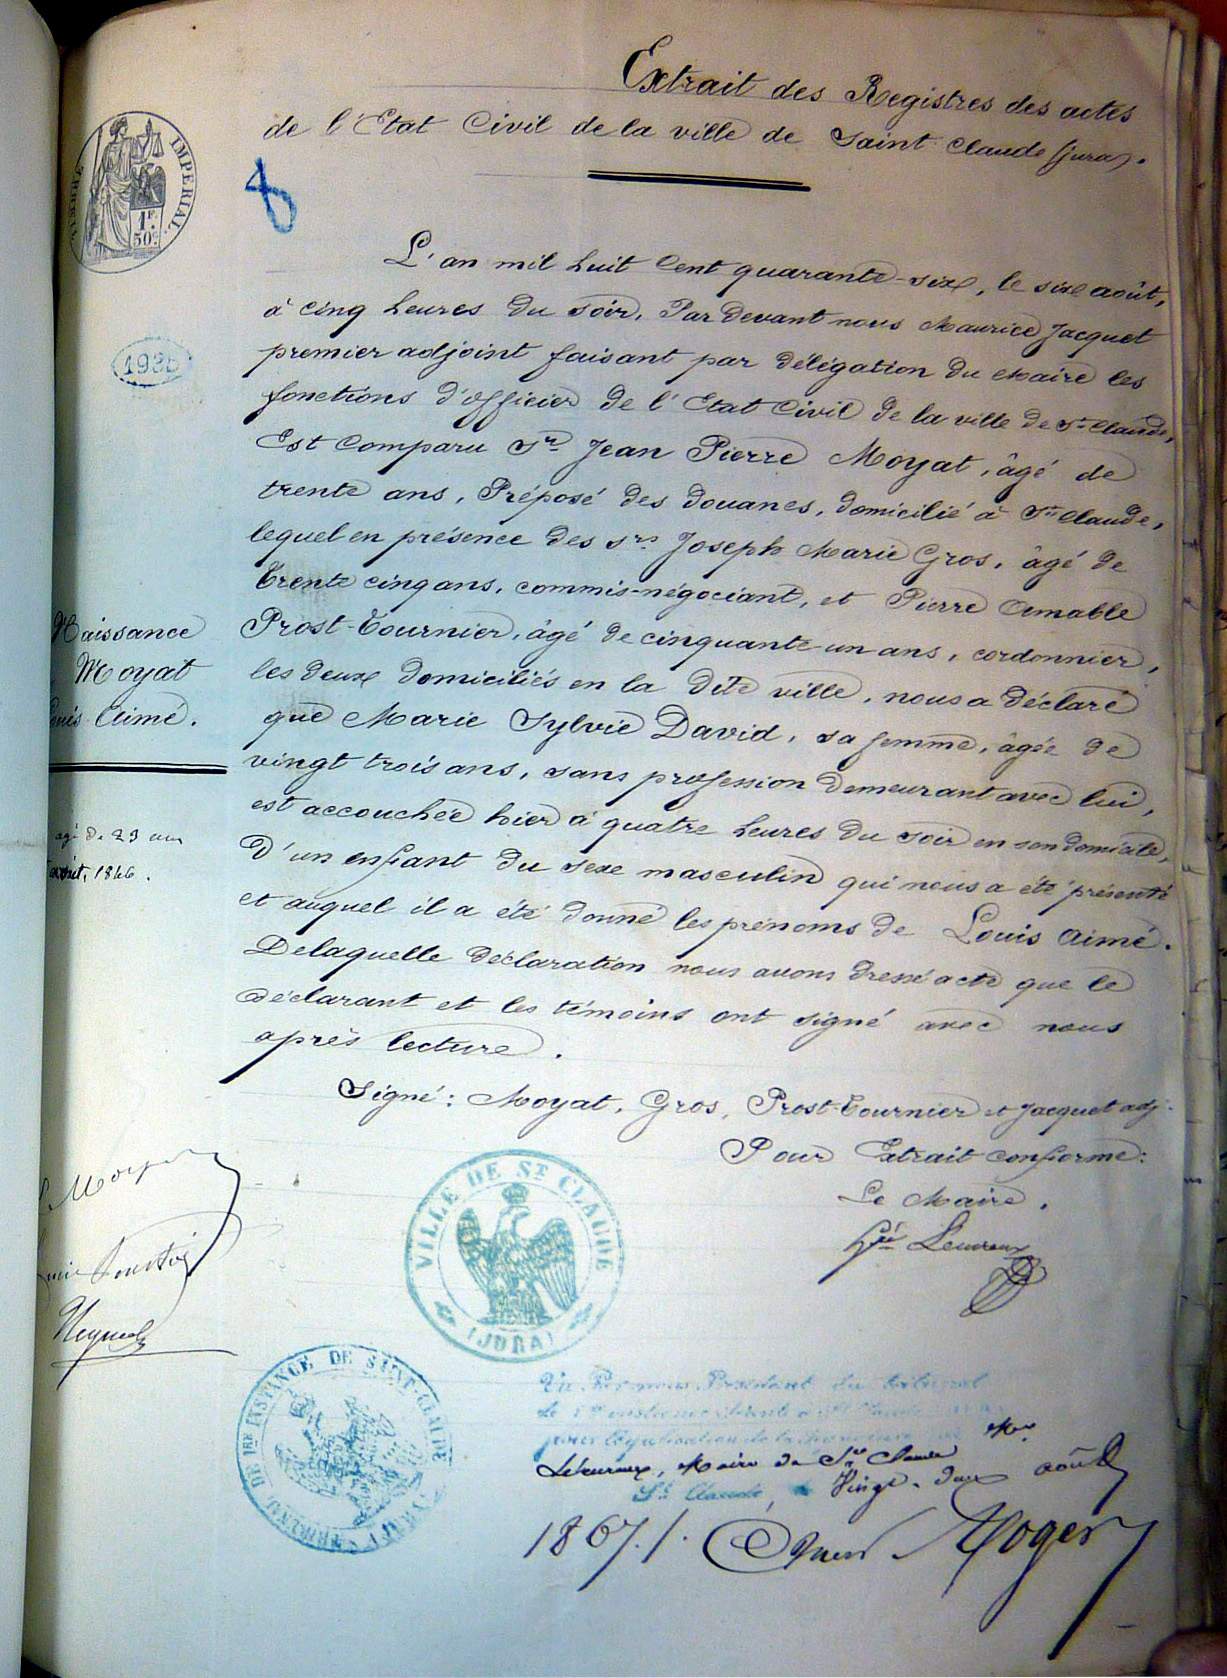 Extrait des Registres des actes
de l'Etat Civil de la ville de Saint Claude (jura).
TIMBRE IMPERIAL
1F.
50c.
8
L'an mil huit Cent quarante-six, le six août,
à cinq heures du soir, Par devant nous Maurice Jacquet
premier adjoint faisant par délégation du Maire les
fonctions d'officier de l'Etat Civil de la ville de St Claude,
Est Comparu Sr Jean Pierre Moyat, âgé de
trente ans, Préposé des douanes, domicilié à St Claude,
lequel en présence des srs Joseph Marie Gros, âgé de
trente cinq ans, commis-négociant, et Pierre Amable
Prost-Tournier, âgé de cinquante un ans, cordonnier,
les deux domiciliés en la dite ville, nous a déclaré
que Marie Sylvie David, sa femme, âgée de
vingt trois ans, sans profession demeurant avec lui,
est accouchée hier à quatre heures du soir en son domicile,
D'un enfant du sexe masculin qui nous a été présenté
et auquel il a été donné les prénoms de Louis Aimé.
Delaquelle déclaration nous avons dressé acte que le
déclarant et les témoins ont signé avec nous
après lecture.
Signé: Moyat, Gros, Prost-Tournier et Jacquet adj.
Pour Extrait conforme:
Le Maire,
Naissance
Moyat
Aimé.
agé de 23 ans
août, 1846.
VILLE DE ST CLAUDE
(JURA)
TRIBUNAL DE 1RE INSTANCE DE SAINT-CLAUDE
Vu Par nous Président du tribunal
de 1re instance
pour légalisation de la Mr
Maire de St Claude
St Claude, le Vingt-deux août
1867.